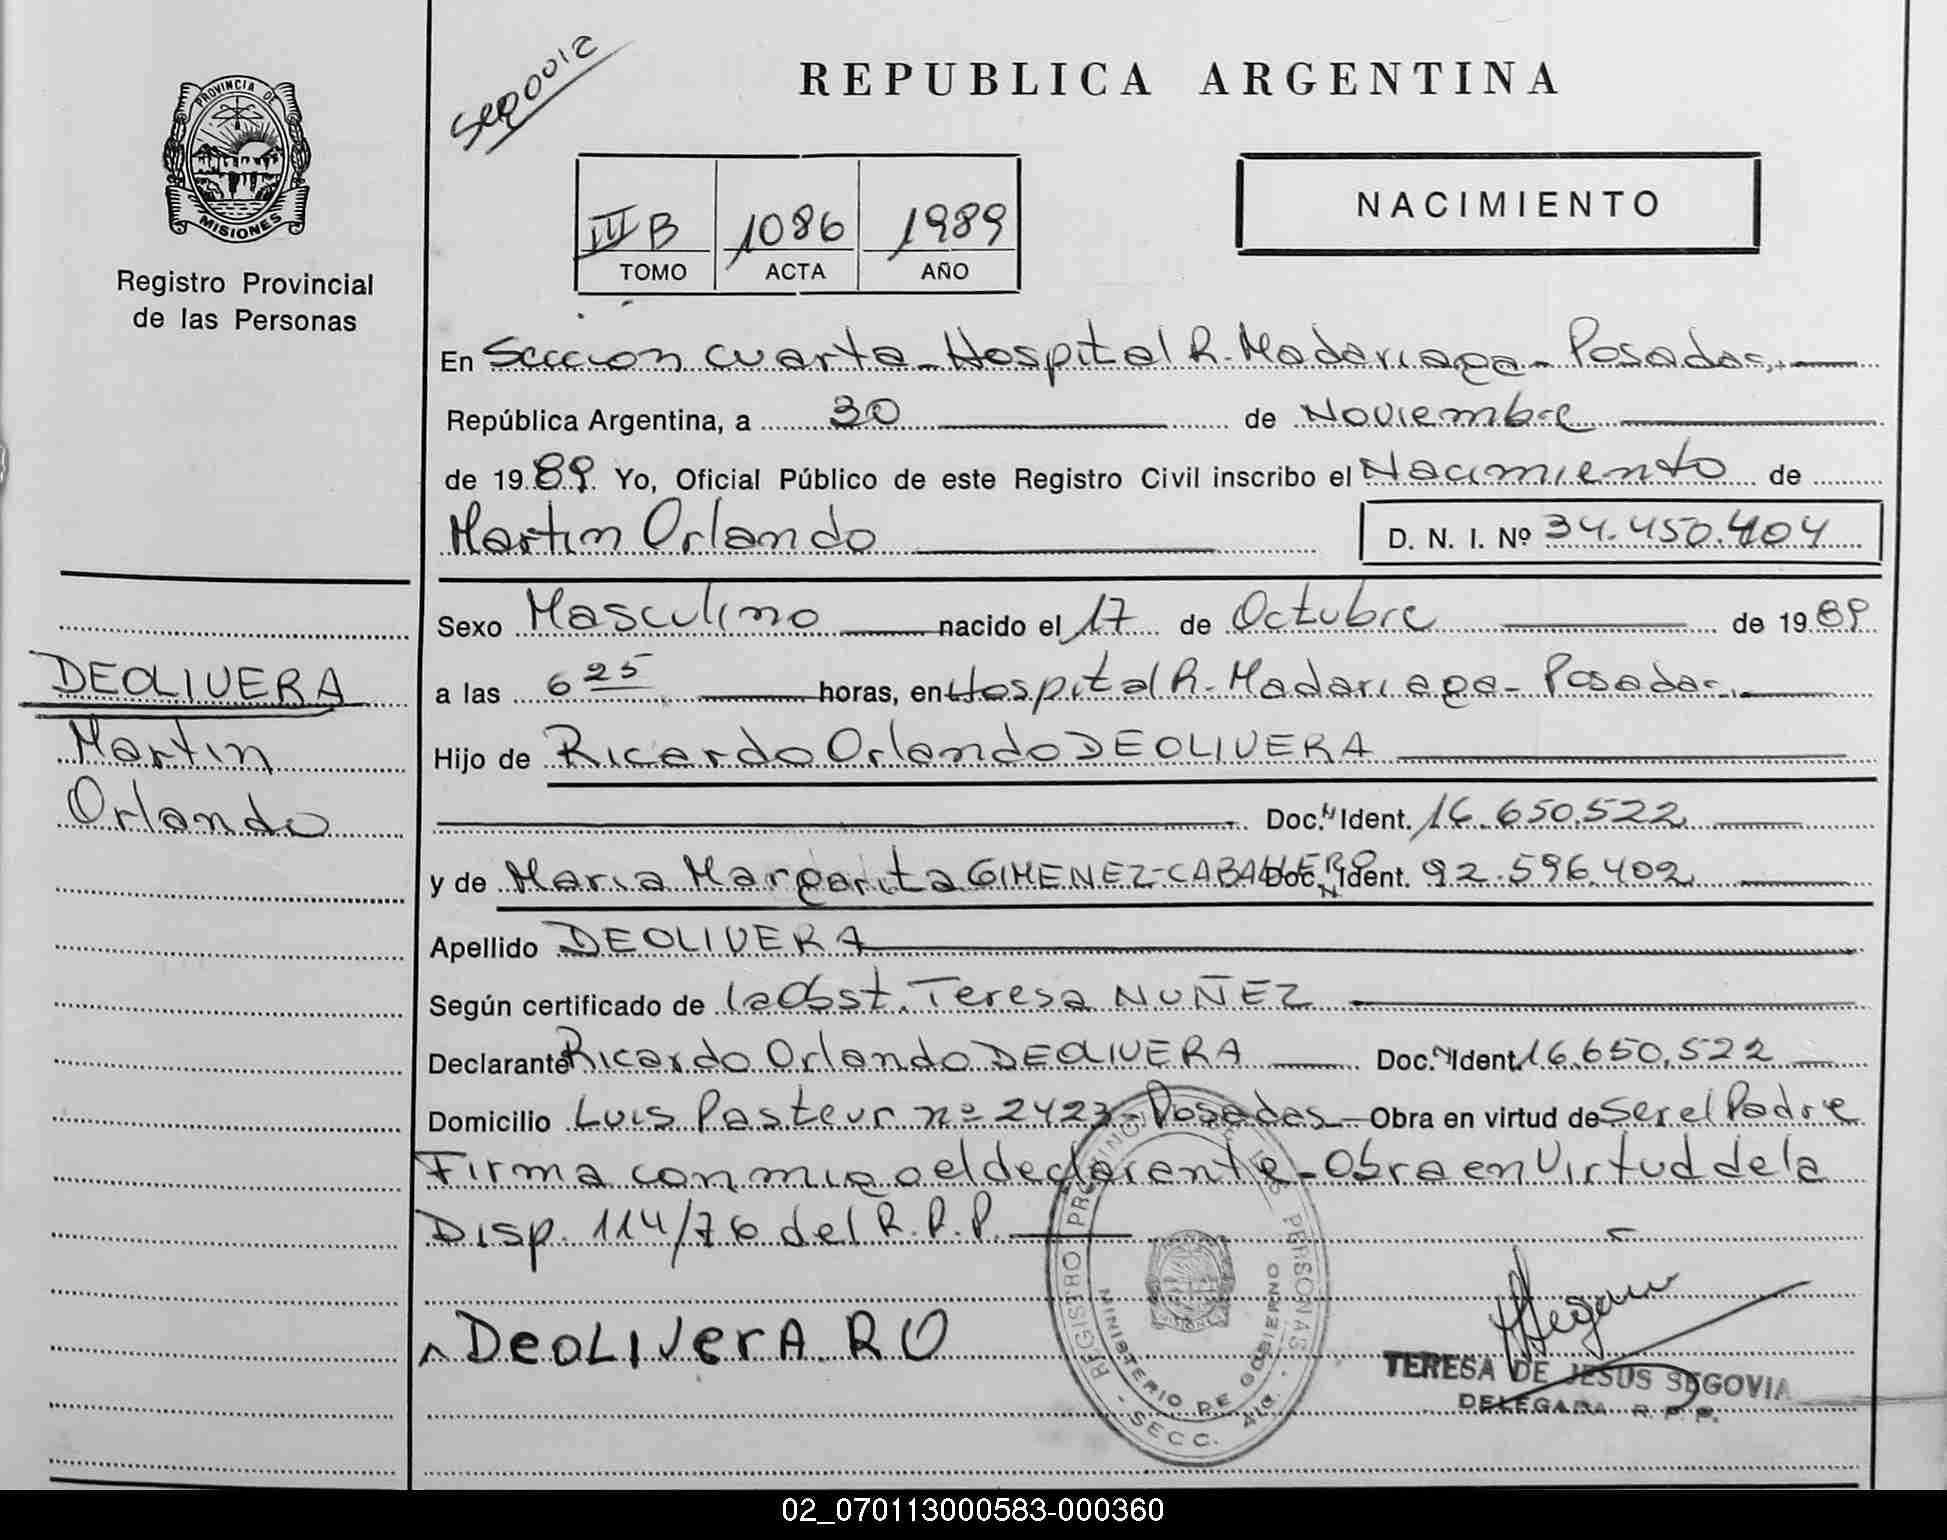 PROVINCIA DE
MISIONES
Registro Provincial
de las Personas
REPUBLICA ARGENTINA
III B 1086 1989
TOMO ACTA AÑO
NACIMIENTO
En Seccion cuarta - Hospital R. Madariaga - Posadas,
República Argentina, a 30 de Noviembre
de 1989 Yo, Oficial Público de este Registro Civil inscribo el Nacimiento de
Martin Orlando D. N. I. Nº 34.450.404
Sexo Masculino nacido el 17 de Octubre de 1989
a las 6 25 horas, en Hospital R. Madariaga - Posadas.
Hijo de Ricardo Orlando DEOLIVERA
Doc. N Ident. 16.650.522
y de Maria Margarita GIMENEZ-CABALLERO Doc. N Ident. 92.596.402
Apellido DEOLIVERA
Según certificado de la Obst. Teresa NUÑEZ
Declarante Ricardo Orlando DEOLIVERA Doc. N Ident. 16.650.522
Domicilio Luis Pasteur nº 2423 - Posadas - Obra en virtud de Ser el Padre
Firma conmigo el declarante - Obra en Virtud de la
Disp. 114/76 del R.P.P.
DeoLiverA RO
DEOLIVERA
Martin
Orlando
REGISTRO PROVINCIAL DE LAS PERSONAS
MINISTERIO DE GOBIERNO
SECC. 4ta.
TERESA DE JESUS SEGOVIA
DELEGADA R. P. P.
02_070113000583-000360